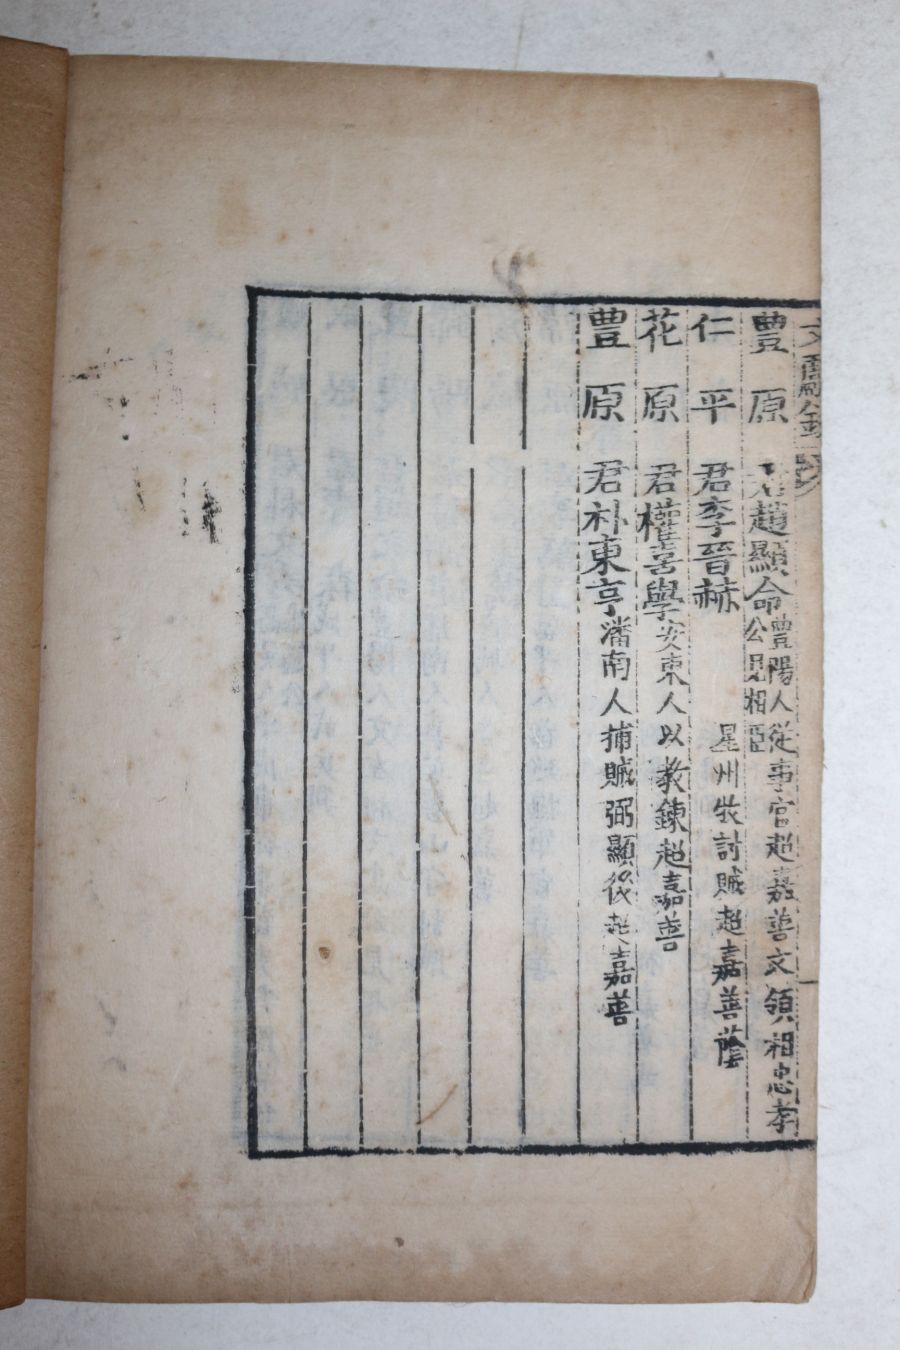 豊原君趙顯命豊陽人從事官超嘉善文領相忠孝
公見相臣
仁平君李晉赫星州牧討賊超嘉善蔭
花原君權喜學安東人以教鍊超嘉善
豊原君朴東亨潘南人捕賊弼顯後超嘉善